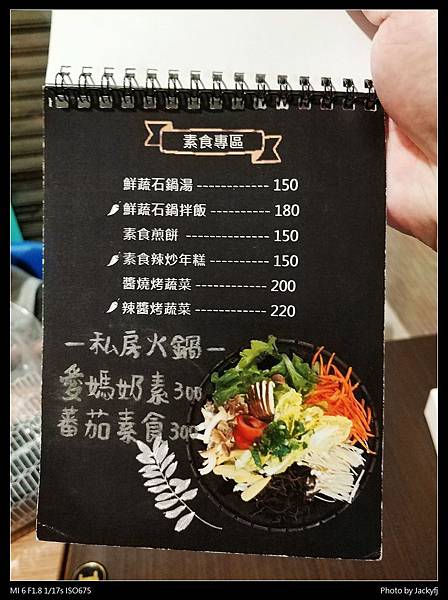 素食專區
鮮蔬石鍋湯 ------------ 150
鮮蔬石鍋拌飯 ----------- 180
素食煎餅 -------------- 150
素食辣炒年糕 ----------- 150
醬燒烤蔬菜 ------------ 200
辣醬烤蔬菜 ------------ 220
—私房火鍋—
愛媽奶素300
蕃茄素食300
MI 6 F1.8 1/17s ISO675
Photo by Jackyfj